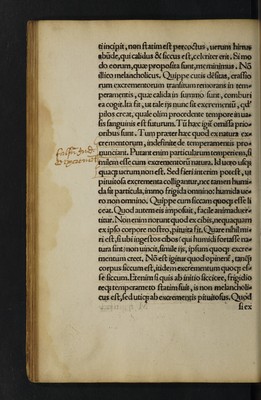 ti incipit, non statim est percoctus, uerum hirtus
abũde, qui calidus & siccus est, celeriter erit. Si mo
do eorum, quæ proposita sunt, meminimus. Nõ
illico melancholicus. Quippe cutis dẽsitas, crassio
rum excrementorum transitum remorans in tem
peramentis, quæ calida in summo sunt, comburi
ea cogit. Ita fit, ut tale ijs nunc sit excremẽtũ, qđ
pilos creat, quale olim procedente tempore in ua
sis sanguinis est futurum. Tũ hæc igr̃ omissa prio-
ribus sunt. Tum præter hæc quod ex natura ex
crementorum, indefinite de temperamentis pro
nunciant. Putant enim particularum temperiem, si
milem esse cum excrementorũ natura. Id uero usq
quaq; uerum non est. Sed fieri interim potest, ut
pituitosa excrementa colligantur, nec tamen humi
da sit particula, immo frigida omnino: humida ue
ro non omnino. Quippe cum siccam quoq; esse li
ceat. Quod autem eis imposuit, facile animaduer-
titur. Non enim norunt quod ex cibis, nequaquam
ex ipso corpore nostro, pituita fit. Quare nihil mi-
ri est, si ubi ingestos cibos (qui humidi fortasse na
tura sint) non uincit, simile ijs, ipsum quoq; excre-
mentum creet. Nõ est igitur quod opinent, tanq̃
corpus siccum est, itidem excrementum quoq; es-
se siccum. Etenim si quis ab initio siccior, frigidio
req; temperameto statim fuit, is non melancholi-
cus est, sed utiq; ab excrementis pituitosus. Quod
si ex